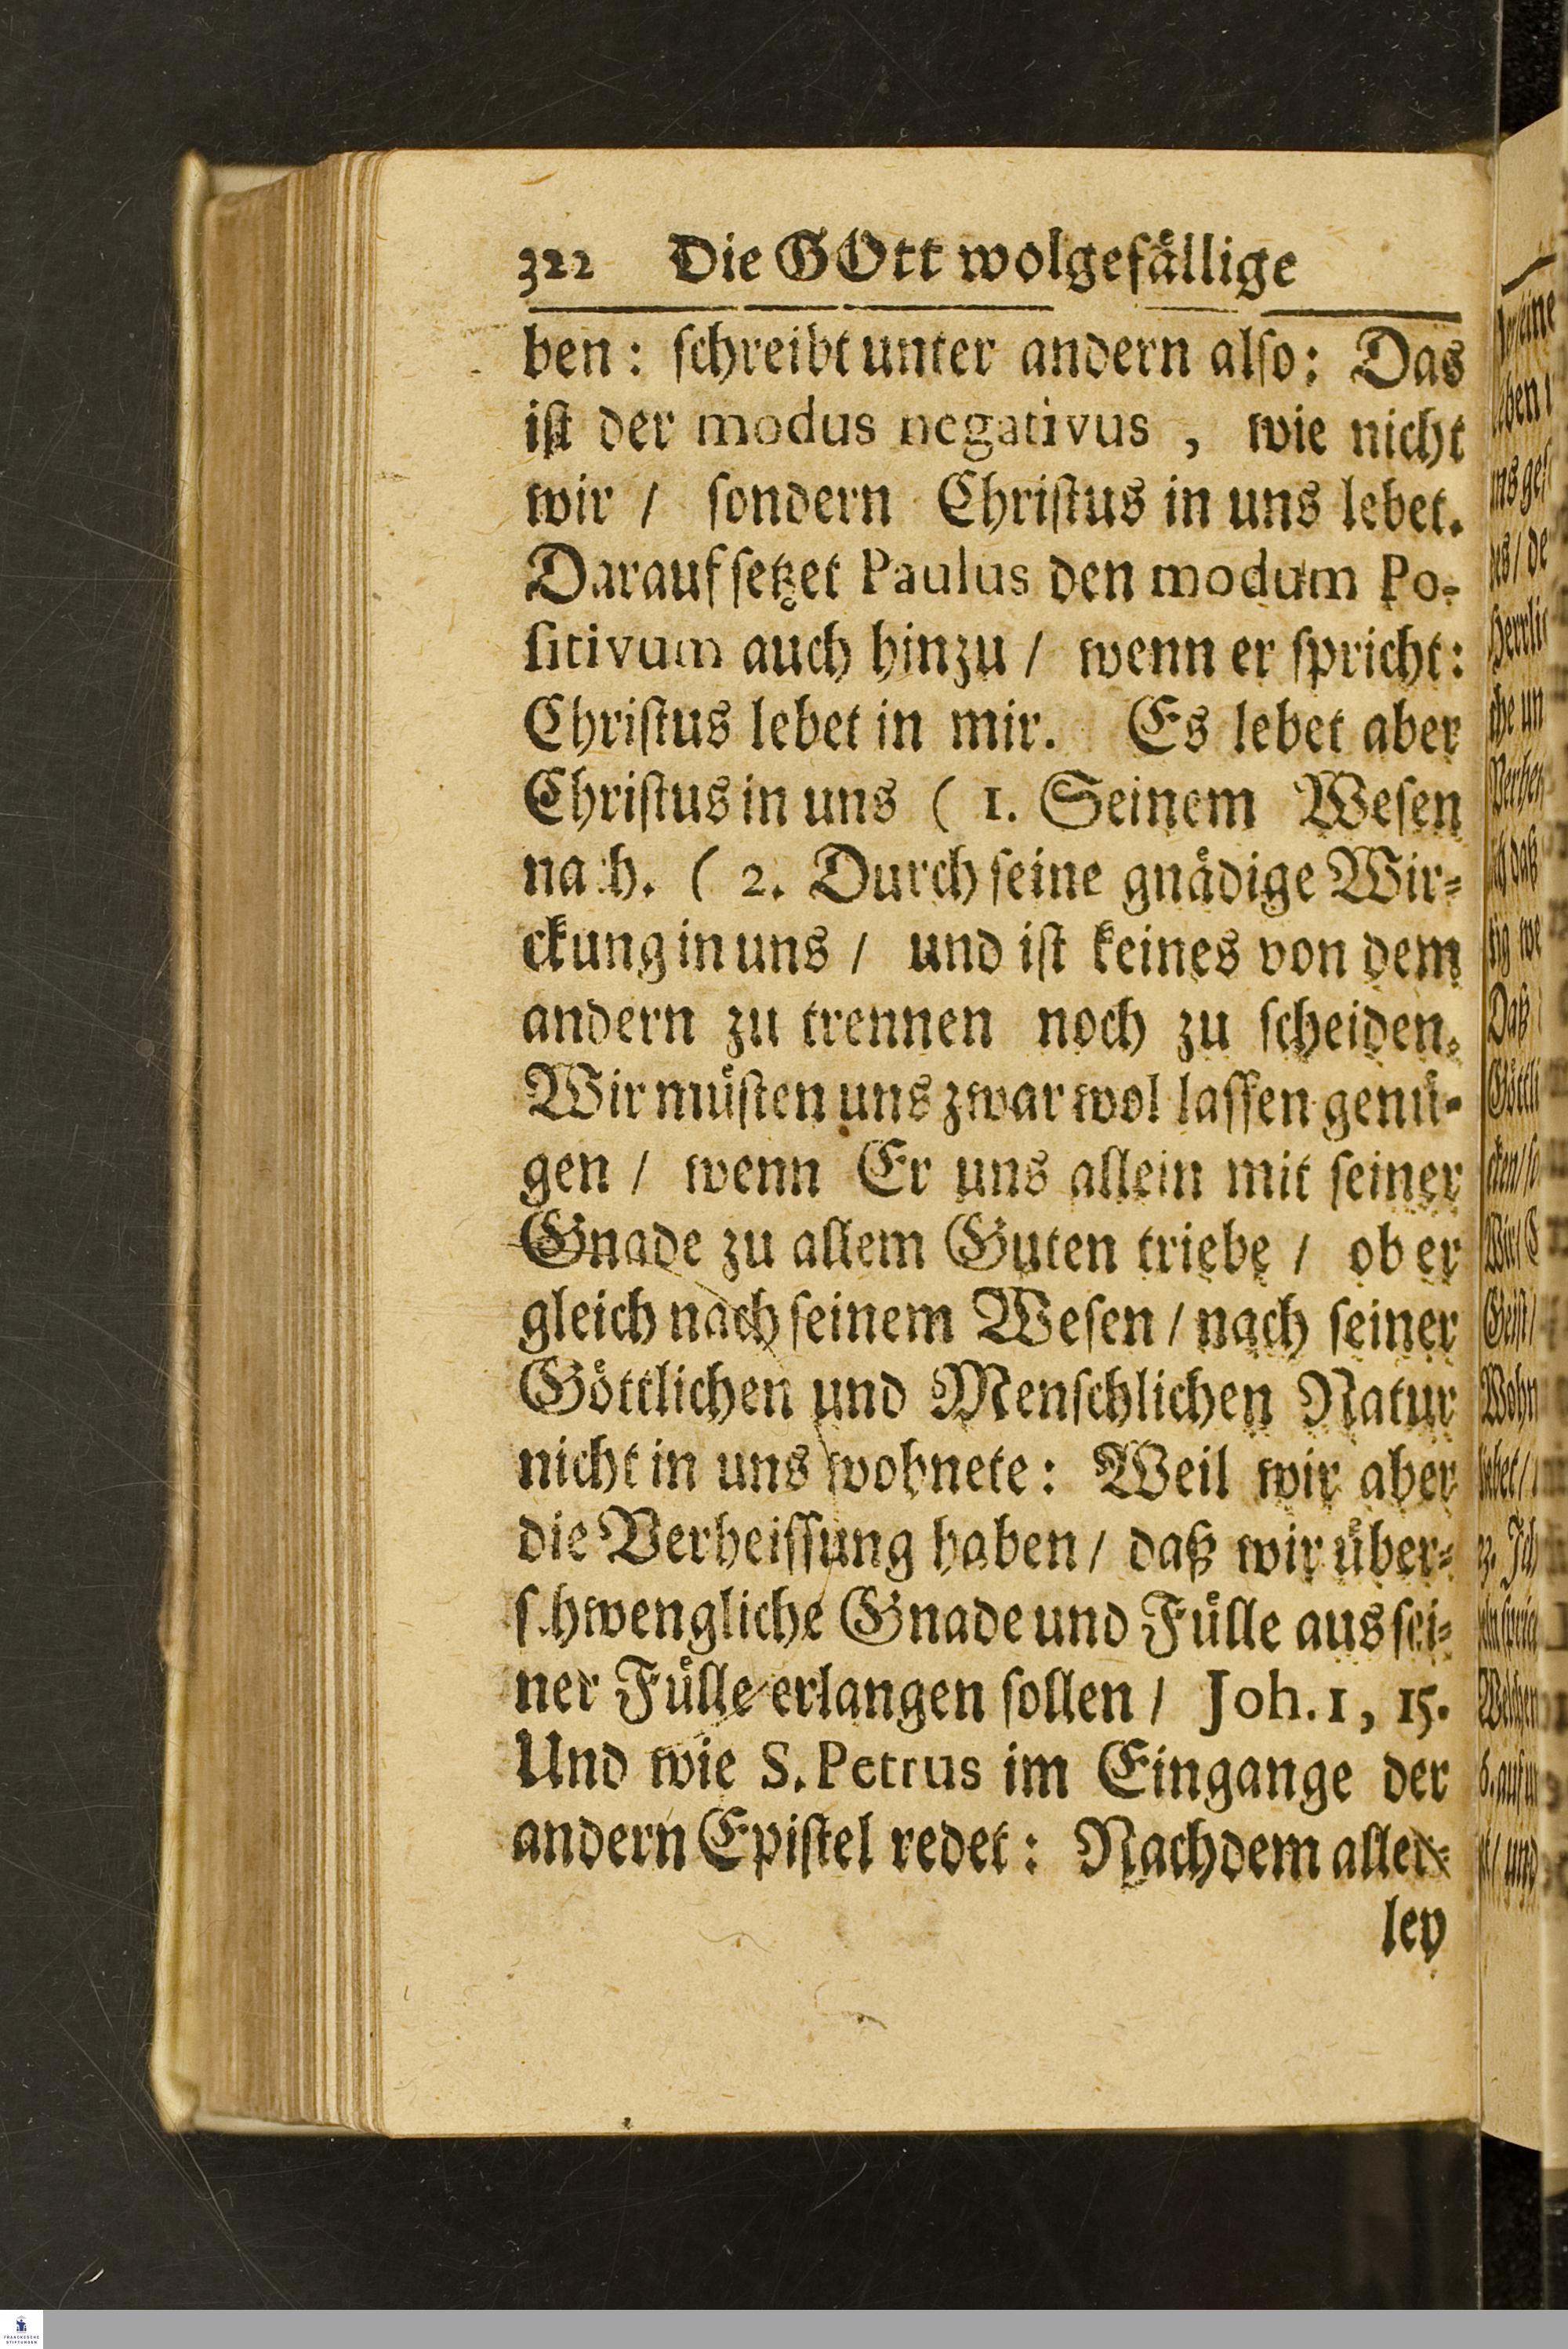 322 Die GOtt wolgefåͤllige
ben: ſchreibt unter andern alſo: Das
iſt der modus negativus , wie nicht
wir / ſondern Chriſtus in uns lebet.
Darauf ſetzet Paulus den modum Po-
ſitivum auch hinzu / wenn er ſpricht:
Chriſtus lebet in mir. Es lebet aber
Chriſtus in uns ( 1. Seinem Weſen
nach. ( 2. Durch ſeine gnaͤdige Wir-
ckung in uns / und iſt keines von dem
andern zu trennen noch zu ſcheiden.
Wir muͤſten uns zwar wol laſſen genuͤ-
gen / wenn Er uns allein mit ſeiner
Gnade zu allem Guten triebe / ob er
gleich nach ſeinem Weſen / nach ſeiner
Goͤttlichen und Menſchlichen Natur
nicht in uns wohnete: Weil wir aber
die Verheiſſung haben / daß wir uͤber-
ſchwengliche Gnade und Fuͤlle aus ſei-
ner Fuͤlle erlangen ſollen / Joh. 1, 15.
Und wie S. Petrus im Eingange der
andern Epiſtel redet: Nachdem aller-
ley
FRANCKESCHE
STIFTUNGEN